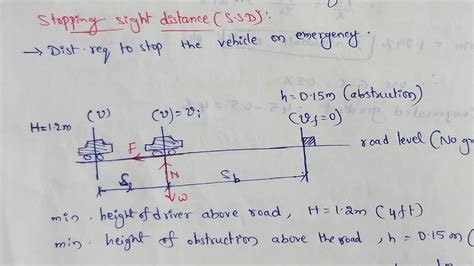 Stopping sight distance (S.S.D):
→ Dist. req to stop the vehicle on emergency.
h=0.15m (abstruction)
(v) (v)=vi (vf=0)
H=1.2m
F
road level (No g
N
S1 Sb
W
min. height of driver above road, H=1.2m (4ft)
min. height of obstruction above the road, h=0.15m (